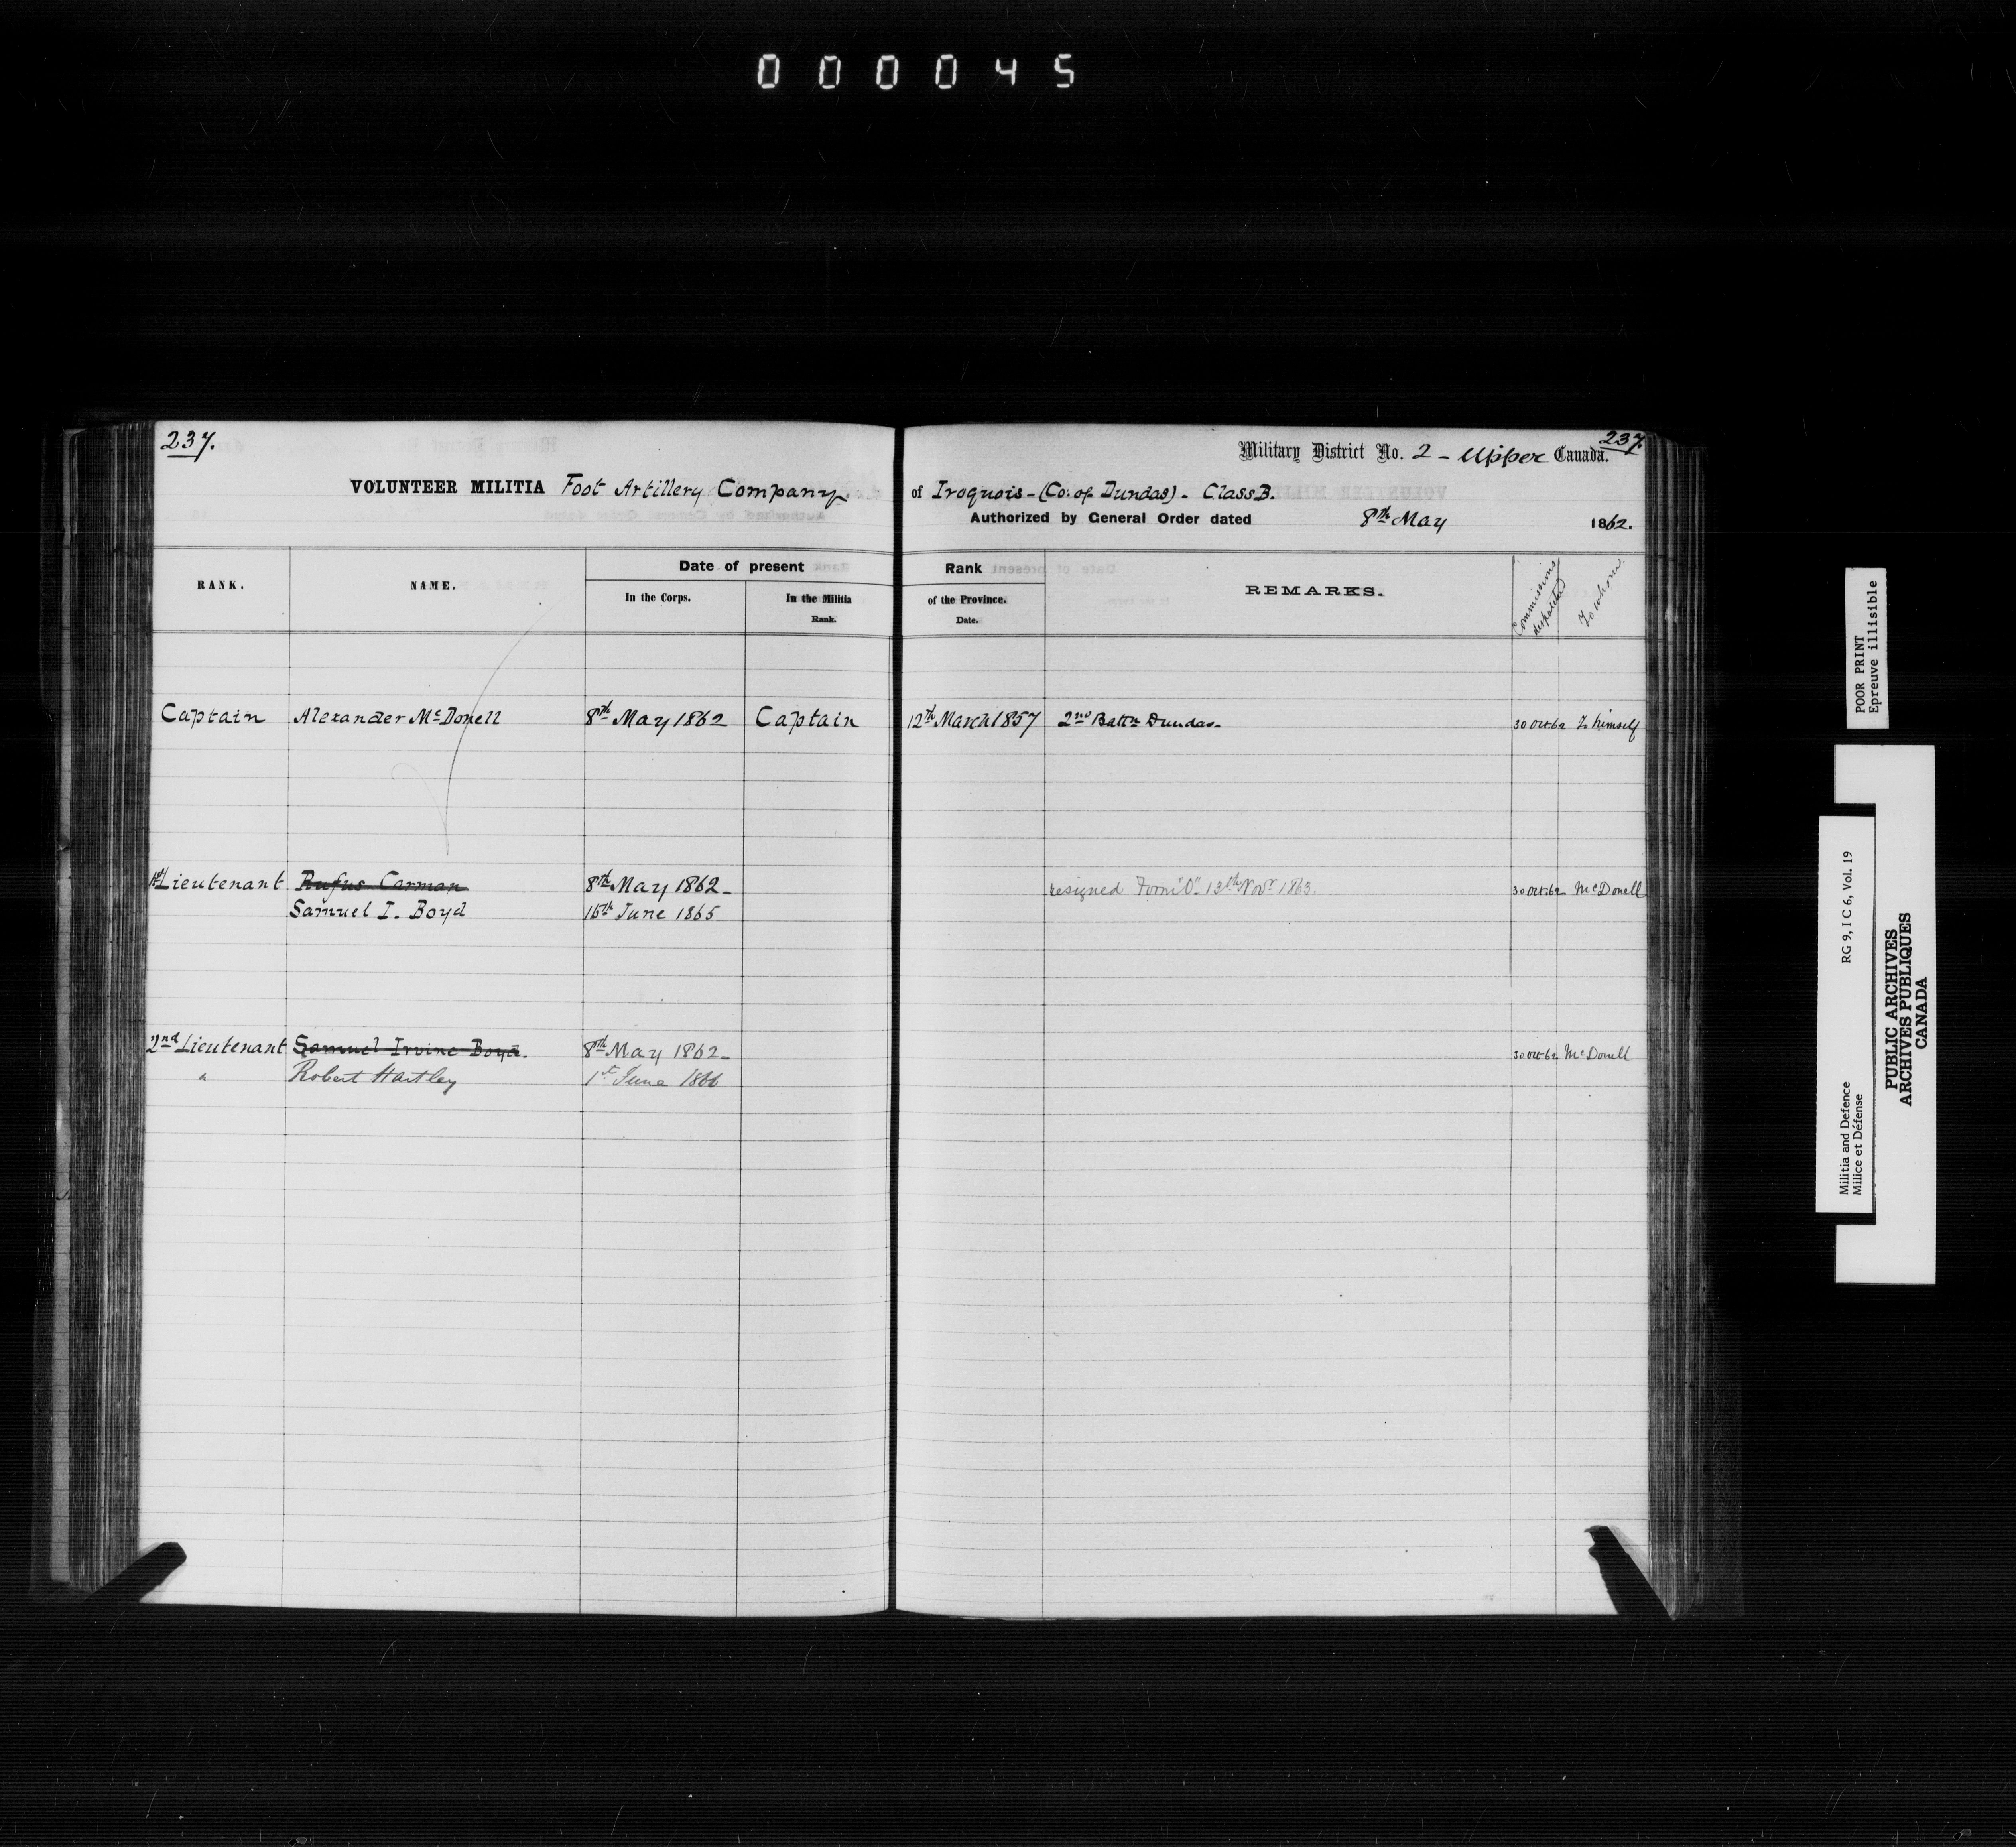 000045
237.
237.
Military District No. 2 - Upper Canada.
VOLUNTEER MILITIA Foot Artillery Company of Iroquois - (Co: of Dundas) - Class B.
Authorized by General Order dated 8th May 1862.
RANK. NAME. Date of present Rank REMARKS. Commissions despatched To whom.
In the Corps. In the Militia of the Province.
Rank. Date.
Captain Alexander McDonell 8th May 1862 Captain 12th March 1857 2nd Battn Dundas - 30 Oct 62 To himself
1st Lieutenant Rufus Carman 8th May 1862 - resigned Form "O" 13th Novr 1863. 30 Oct 62 McDonell
Samuel I. Boyd 16th June 1865
2nd Lieutenant Samuel Irvine Boyd. 8th May 1862 - 30 Oct 62 McDonell
" Robert Hartley 1st June 1866
POOR PRINT
Epreuve illisible
RG 9, I C 6, Vol. 19
Militia and Defence
Milice et Défense
PUBLIC ARCHIVES
ARCHIVES PUBLIQUES
CANADA